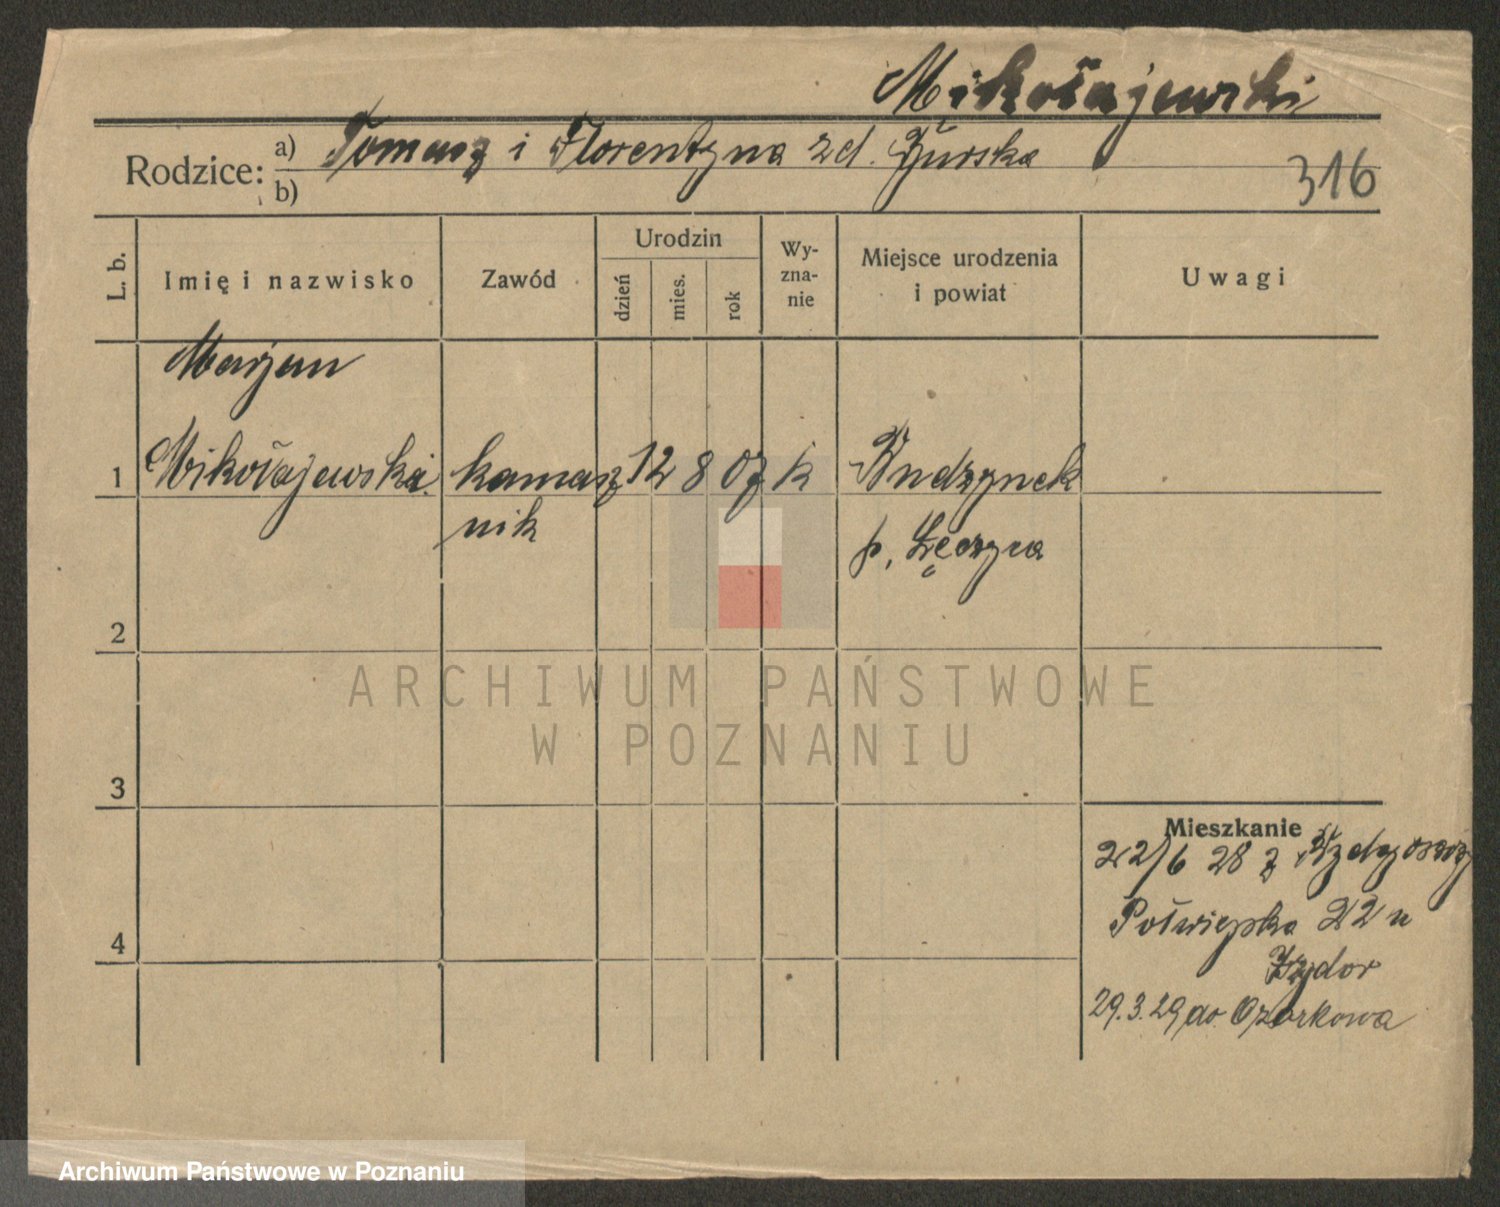 Mikołajewski
Rodzice: a) Tomasz i Florentyna zd. Żurska
b)
316
L. b.
Imię i nazwisko
Zawód
Urodzin
dzień
mies.
rok
Wy-
zna-
nie
Miejsce urodzenia
i powiat
Uwagi
Marjan
1 Mikołajewski kamasz 12 8 07 k Budzynek
nik p. Łęczyca
2
3
4
Mieszkanie
22/6 28 z Bydgoszczy
22 u
29.3.29 do Ozorkowa
ARCHIWUM PAŃSTWOWE
W POZNANIU
Archiwum Państwowe w Poznaniu